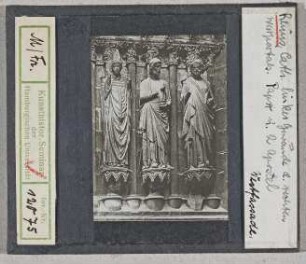 M/Fr.
Kunsthistor. Seminar
der
Hamburgischen Universität
12875
Reims, Cath. linkes Gewände d. rechten
Westportals. Papst u. 2 Apostel
Westfassade.